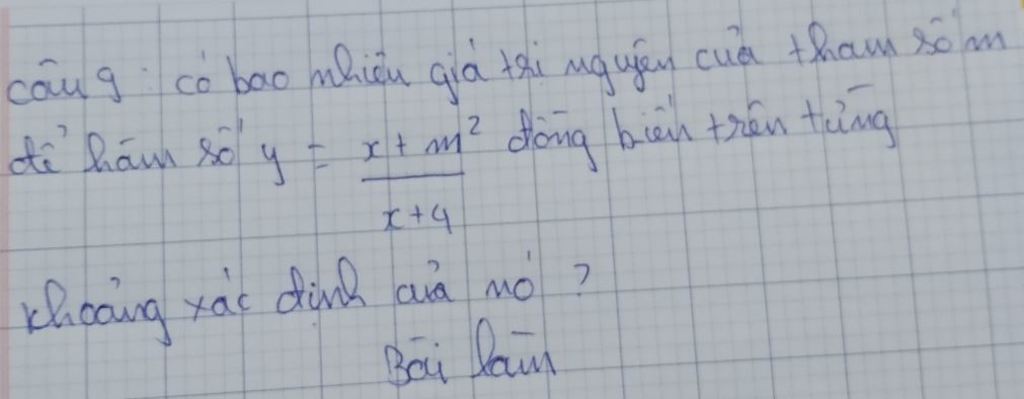 câu 9: có bao nhiêu giá trị nguyên của tham số m
để hàm số y = \frac{x+m^2}{x+4} đồng biến trên từng
khoảng xác định của nó ?
Bài làm